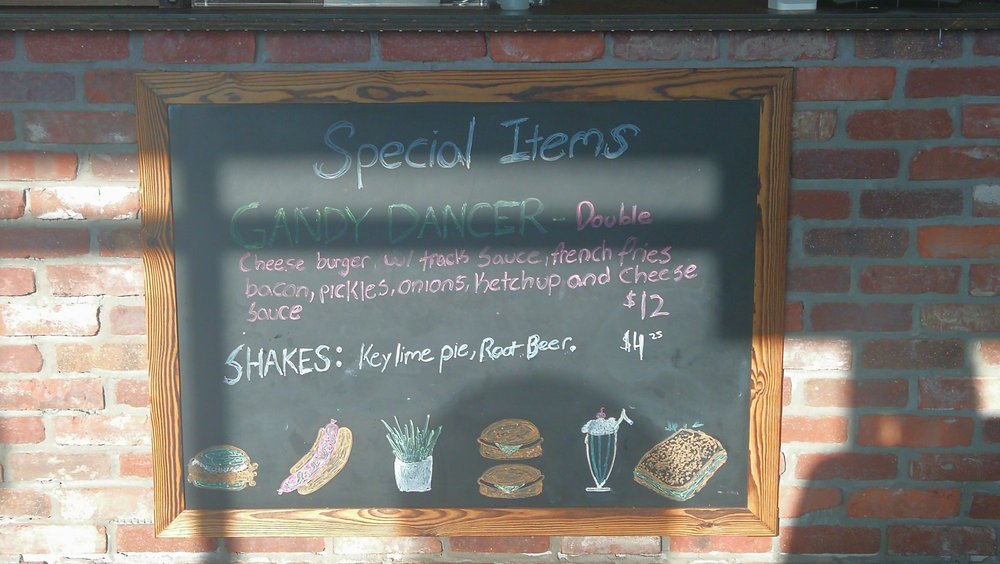 Special Items
GANDY DANCER - Double
Cheese burger w/ track Sauce, french fries
bacon, pickles, onions, Ketchup and Cheese
Sauce $12
SHAKES: Key lime pie, Root Beer. $4 25